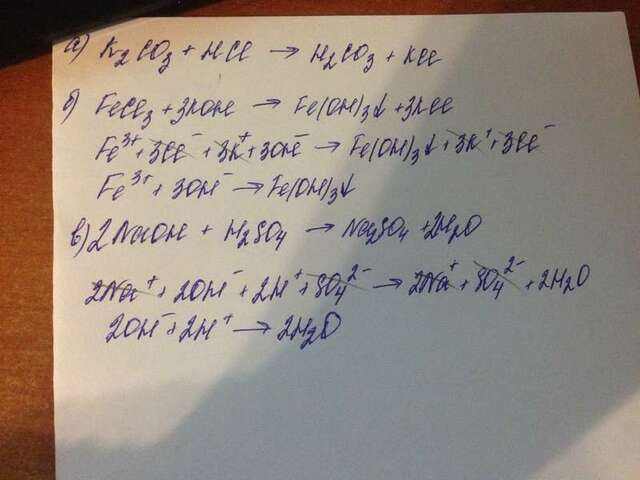 а) K₂CO₃ + HCl → H₂CO₃ + KCl
б) FeCl₃ + 3KOH → Fe(OH)₃↓ + 3KCl
Fe³⁺ + 3Cl⁻ + 3K⁺ + 3OH⁻ → Fe(OH)₃↓ + 3K⁺ + 3Cl⁻
Fe³⁺ + 3OH⁻ → Fe(OH)₃↓
в) 2NaOH + H₂SO₄ → Na₂SO₄ + 2H₂O
2Na⁺ + 2OH⁻ + 2H⁺ + SO₄²⁻ → 2Na⁺ + SO₄²⁻ + 2H₂O
2OH⁻ + 2H⁺ → 2H₂O